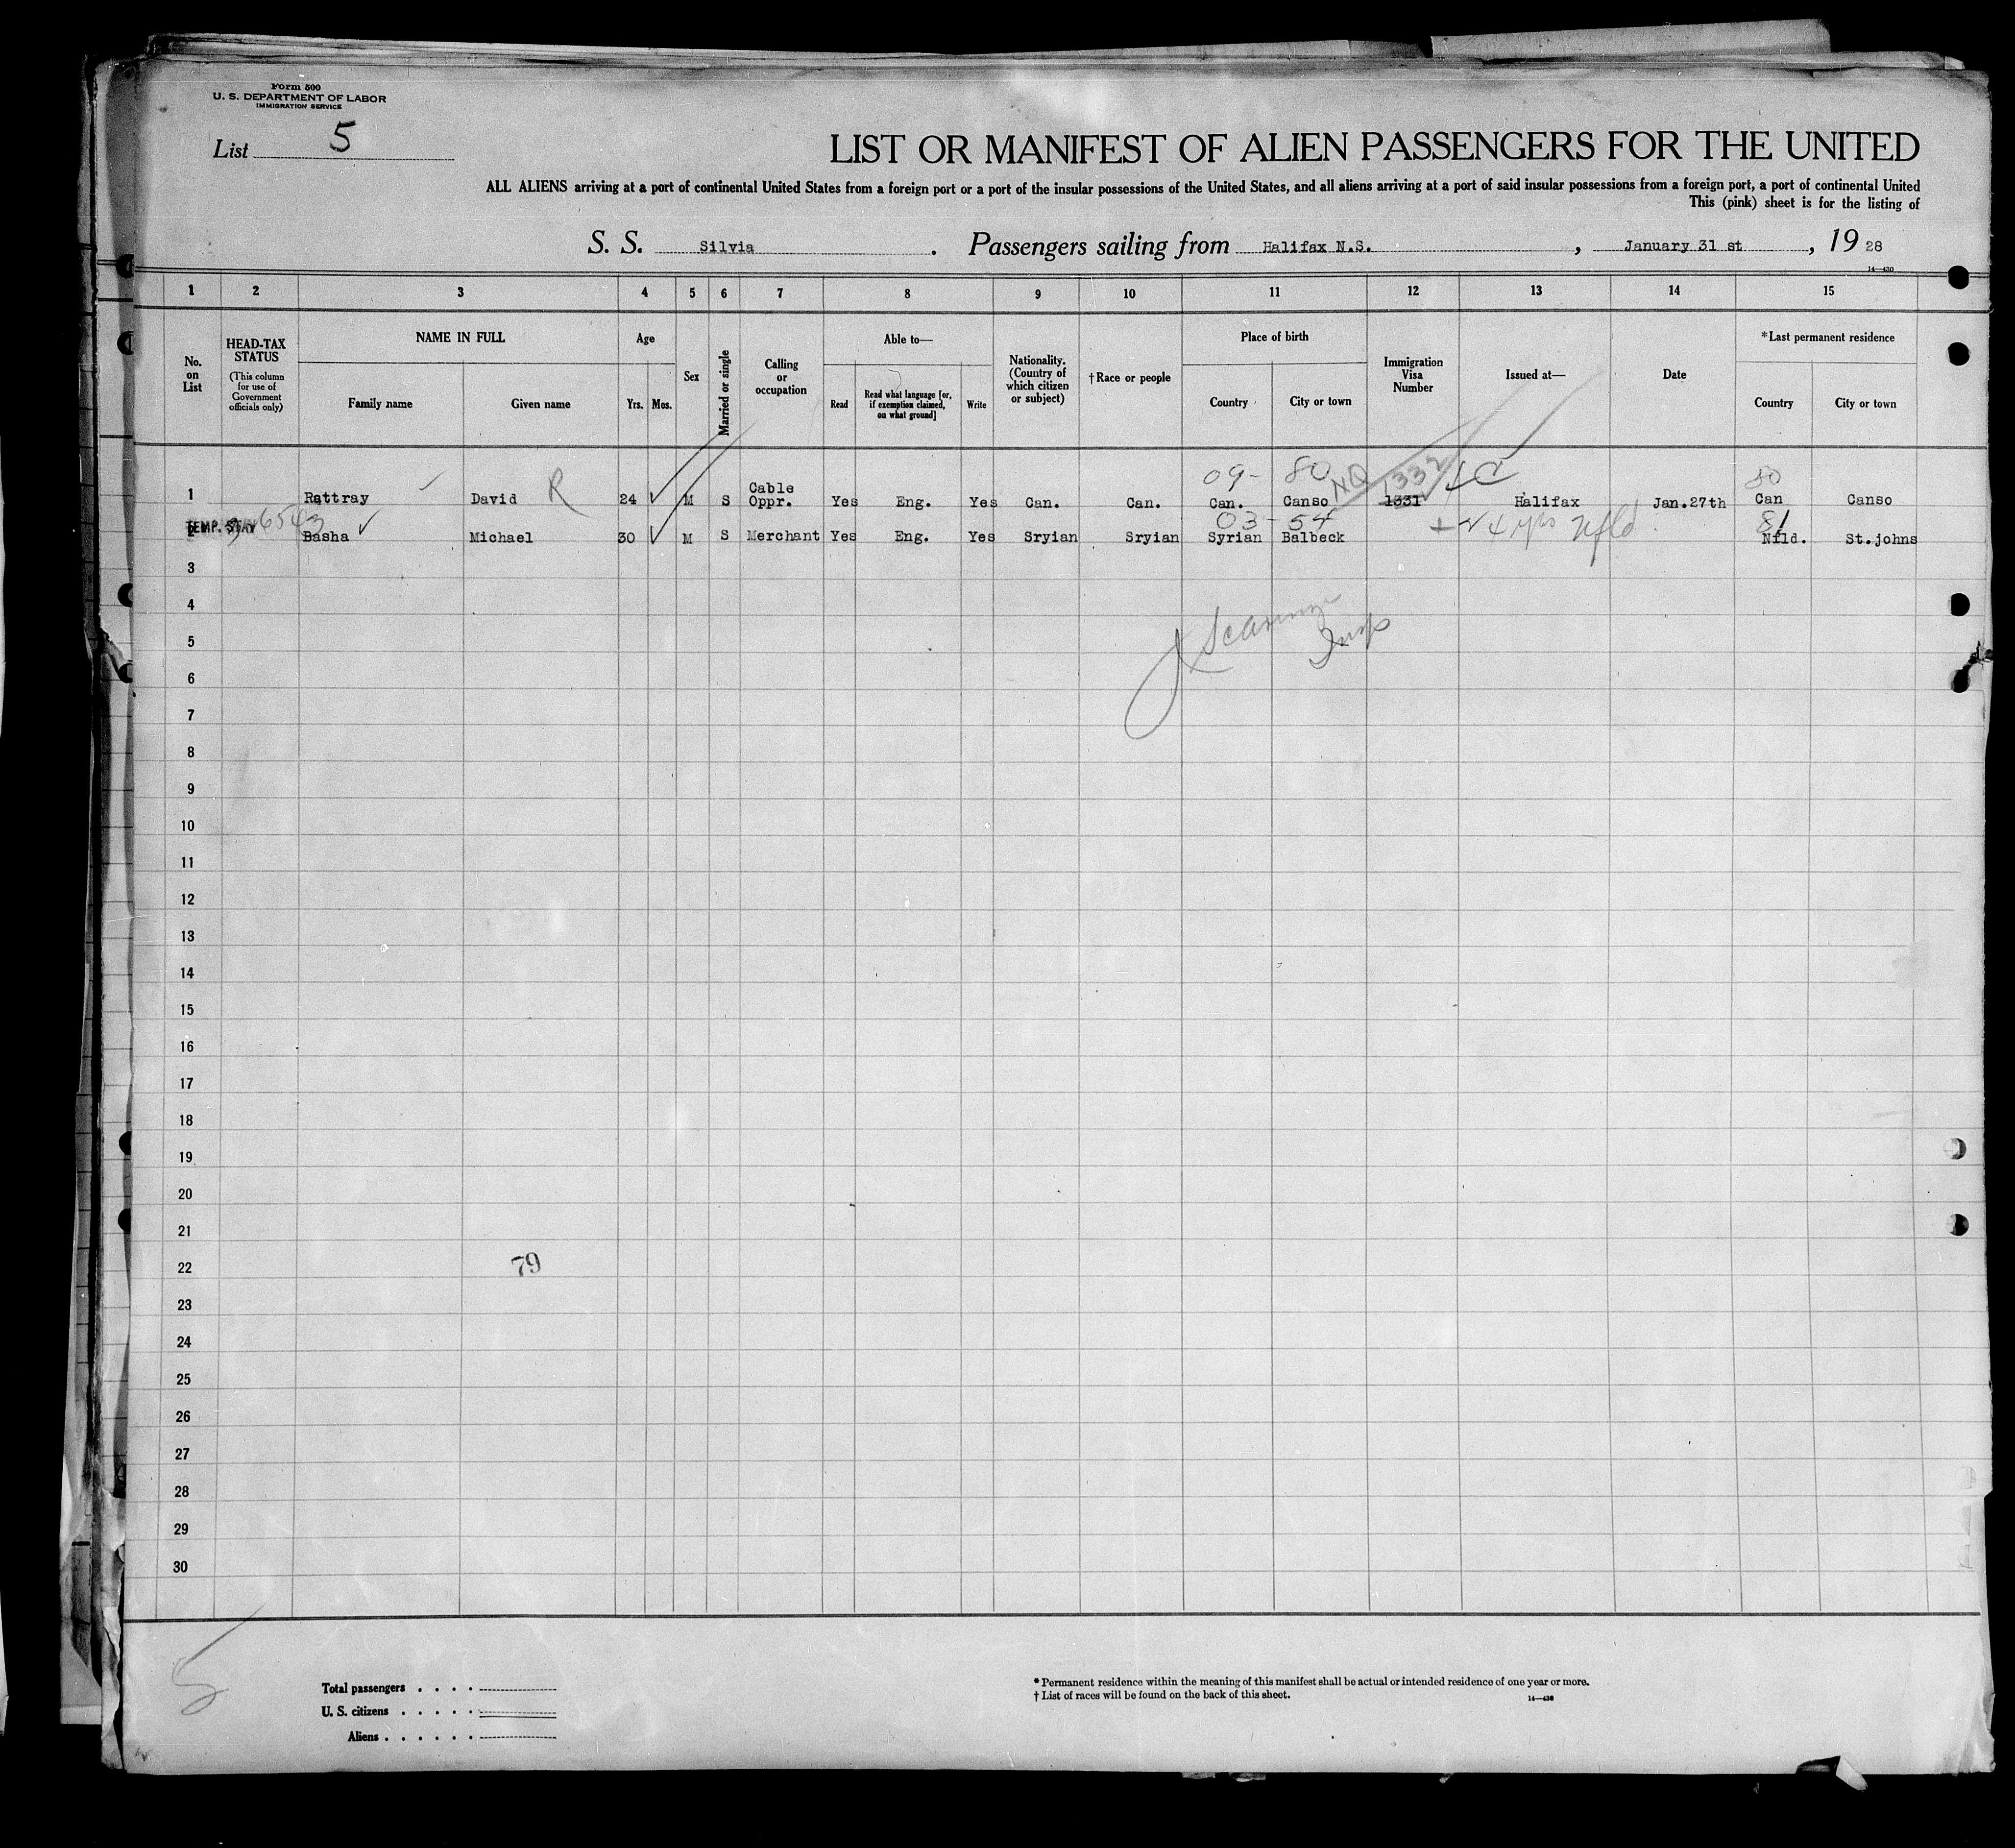 Form 500
U. S. DEPARTMENT OF LABOR
IMMIGRATION SERVICE
List 5
LIST OR MANIFEST OF ALIEN PASSENGERS FOR THE UNITED
ALL ALIENS arriving at a port of continental United States from a foreign port or a port of the insular possessions of the United States, and all aliens arriving at a port of said insular possessions from a foreign port, a port of continental United
This (pink) sheet is for the listing of
S. S. Silvia. Passengers sailing from Halifax N.S., January 31 st, 19 28
14—430
1 2 3 4 5 6 7 8 9 10 11 12 13 14 15
No. on List
HEAD-TAX STATUS
(This column for use of Government officials only)
NAME IN FULL
Family name Given name
Age
Yrs. Mos.
Sex
Married or single
Calling or occupation
Able to—
Read
Read what language [or, if exemption claimed, on what ground]
Write
Nationality. (Country of which citizen or subject)
†Race or people
Place of birth
Country City or town
Immigration Visa Number
Issued at—
Date
*Last permanent residence
Country City or town
09- 80 NQ 1332 80
1 Rattray David R 24 M S Cable Oppr. Yes Eng. Yes Can. Can. Can. Canso 1331 Halifax Jan.27th Can Canso
TEMP. STAY 03-54 4 yrs Nfld 81
2 Basha Michael 30 M S Merchant Yes Eng. Yes Sryian Sryian Syrian Balbeck Nfld. St.johns
3
4
5
Insp
6
7
8
9
10
11
12
13
14
15
16
17
18
19
20
21
22 79
23
24
25
26
27
28
29
30
Total passengers . . . .
U. S. citizens . . . . .
Aliens . . . . . .
* Permanent residence within the meaning of this manifest shall be actual or intended residence of one year or more.
† List of races will be found on the back of this sheet.
14—430